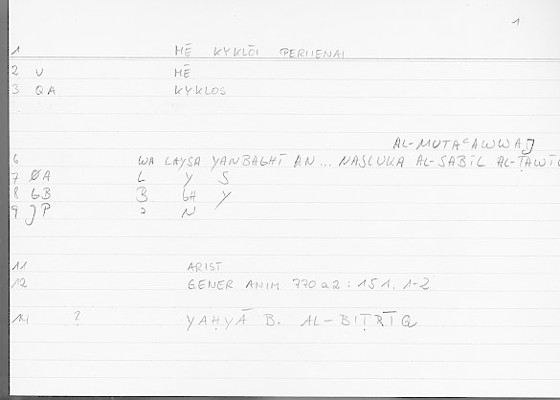 1
1 MĒ KYKLŌI PERIIENAI
2 U MĒ
3 QA KYKLOS
AL-MUTAʿAWWAJ
6 WA LAYSA YANBAGHĪ AN ... NASLUKA AL-SABĪL AL-ṬAWĪL
7 ØA L Y S
8 GB B GH Y
9 JP ʾ N
11 ARIST
12 GENER ANIM 770a2 : 151, 1-2
14 ? YAḤYĀ B. AL-BIṬRĪQ